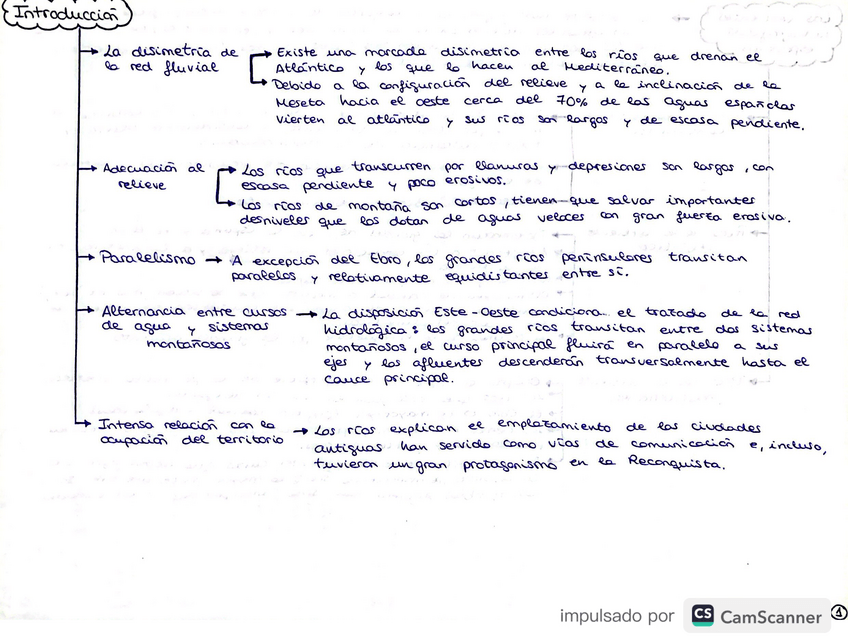 Introducción
La disimetría de
la red fluvial
Existe una marcada disimetría entre los ríos que drenan el
Atlántico y los que lo hacen al Mediterráneo.
Debido a la configuración del relieve y a la inclinación de la
Meseta hacia el oeste cerca del 70% de las aguas españolas
vierten al atlántico y sus ríos son largos y de escasa pendiente.
Adecuación al
relieve
Los ríos que transcurren por llanuras y depresiones son largos, con
escasa pendiente y poco erosivos.
Los ríos de montaña son cortos, tienen que salvar importantes
desniveles que los dotan de aguas veloces con gran fuerza erosiva.
Paralelismo
A excepción del Ebro, los grandes ríos peninsulares transitan
paralelos y relativamente equidistantes entre sí.
Alternancia entre cursos
de agua y sistemas
montañosos
La disposición Este-Oeste condiciona el trazado de la red
hidrológica: los grandes ríos transitan entre dos sistemas
montañosos, el curso principal fluirá en paralelo a sus
ejes y los afluentes descenderán transversalmente hasta el
cauce principal.
Intensa relación con la
ocupación del territorio
Los ríos explican el emplazamiento de las ciudades
antiguas han servido como vías de comunicación e, incluso,
tuvieron un gran protagonismo en la Reconquista.
impulsado por CS CamScanner
1